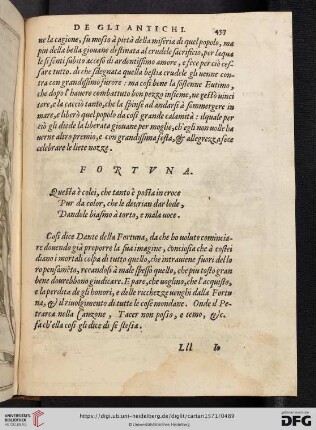 DE GLI ANTICHI.
457
ne la cagione, fu mosso à pietà della miseria di quel popolo, ma
piu della bella giouane destinata al crudele sacrificio, per laqua
le si sentì subito acceso di ardentissimo amore, e fece per ciò ces-
sare tutto. di che sdegnata quella bestia crudele gli uenne con-
tra con grandissimo furore: ma così bene la sostenne Eutimo,
che dopo l'hauere combattuto bon pezzo insieme, ne restò uinci
tore, e la cacciò tanto, che la spinse ad andarsi à sommergere in
mare, e liberò quel popolo da così grande calamità: ilquale per
ciò gli diede la liberata giouane per moglie, ch'egli non uolle ha
uerne altro premio, e con grandissima festa, & allegrezza fece
celebrare le liete nozze.
FORTVNA.
Questa è colei, che tanto è posta in croce
Pur da color, che le deurian dar lode,
Dandole biasmo à torto, e mala uoce.
Così dice Dante della Fortuna, da che ho uoluto comincia-
re douendo già proporre la sua imagine, conciosia che à costei
diano i mortali colpa di tutto quello, che intrauiene fuori del lo
ro pensamẽto, recandosi à male spesso quello, che piu tosto gran
bene dourebbono giudicare. E pare, che uoglino, che l'acquisto,
e la perdita de gli honori, e delle ricchezze uenghi dalla Fortu
na, & il riuolgimento di tutte le cose mondane. Onde il Pe
trarca nella Canzone, Tacer non posso, e temo, &c.
fa ch'ella così gli dice di se stessa.
Lll
Io
UNIVERSITÄTS-
BIBLIOTHEK
HEIDELBERG
https://digi.ub.uni-heidelberg.de/diglit/cartari1571/0489
© Universitätsbibliothek Heidelberg
gefördert durch die
DFG